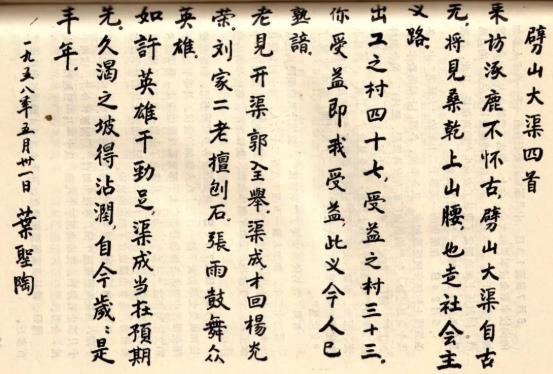 劈山大渠四首
来访涿鹿不怀古,劈山大渠自古
无.将見桑乾上山腰,也走社会主
义路.
出工之村四十七,受益之村三十三.
你受益即我受益,此义今人已
熟諳.
老見开渠郭全舉.渠成才回楊光
荣.刘家二老擅刨石.張雨鼓舞众
英雄.
如許英雄干勁足,渠成当在預期
先.久渴之坡得沾潤,自今歲〻是
丰年.
一九五八年五月卅一日 葉聖陶